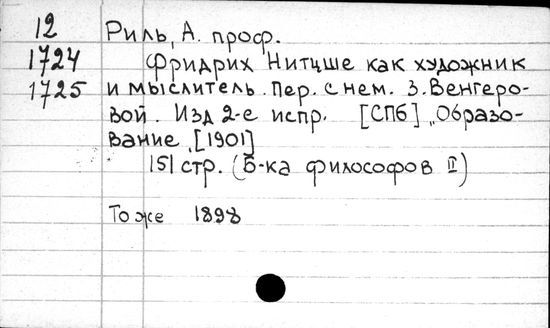 12 Риль, А. проф.
1724 Фридрих Нитцше как художник
1725 и мыслитель. Пер. с нем. З. Венгеро-
вой. Изд 2-е испр. [СПб] „Образо-
вание„ [1901]
151 стр. (Б-ка философов II)
То же 1898